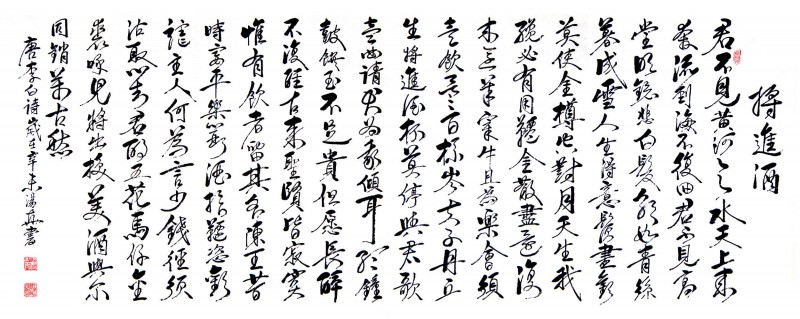 將進酒
君不見黄河之水天上來
奔流到海不復回君不見高
堂明鏡悲白髮朝如青絲
暮成雪人生得意須盡歡
莫使金樽空對月天生我
材必有用千金散盡還復
來烹羊宰牛且為樂會須
一飲三百杯岑夫子丹丘
生將進酒杯莫停與君歌
一曲請君為我傾耳聽鐘
鼓饌玉不足貴但願長醉
不復醒古來聖賢皆寂寞
惟有飲者留其名陳王昔
時宴平樂斗酒十千恣歡
謔主人何為言少錢徑須
沽取對君酌五花馬千金
裘呼兒將出換美酒與爾
同銷萬古愁
唐李白詩歲在辛未湯書